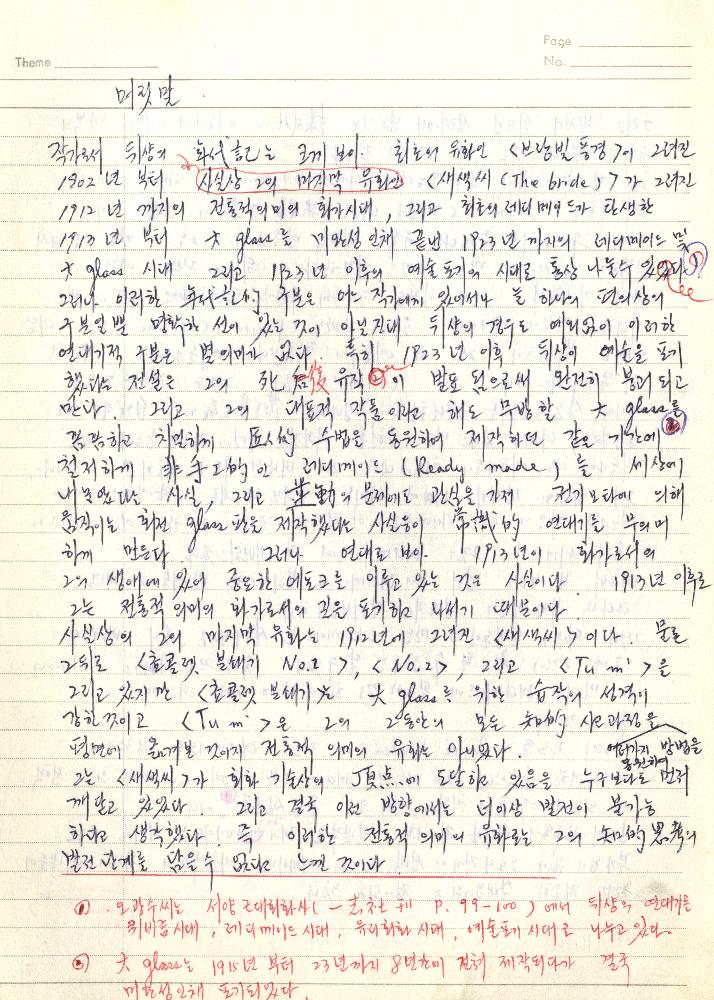 Page
Theme
No.
머릿말.
작가로서 뒤샹의 年代記는 크게 보아. 최초의 유화인 <브랑빌 풍경>이 그려진
1902년 부터 사실상 그의 마지막 유화인 <새색씨 (The bride)>가 그려진
1912년 까지의 전통적의미의 화가시대, 그리고 최초의 레디메이드가 탄생한
1913년 부터 大 glass를 미완성인채 끝낸 1923년까지의 레디메이드 및
大 glass 시대 그리고 1923년 이후의 예술포기의 시대로 통상 나눌수 있었다. ①
그러나 이러한 年代記的 구분은 어느 작가에게 있어서나 늘 하나의 편의상의
구분일뿐 명확한 선이 있는 것이 아닐진대 뒤샹의 경우도 예외없이 이러한
연대기적 구분은 별 의미가 없다. 특히 1923년 이후 뒤샹이 예술을 포기
했다는 전설은 그의 死後 유작이 발표 됨으로써 완전히 붕괴 되고
만다. 그리고 그의 대표적 작품이라고 해도 무방할 大 glass를 ②
꼼꼼하고 치밀하게 匠人的 수법을 동원하여 제작하던 같은 기간에
철저하게 非手工的인 레디메이드 (Ready made)를 세상에
내놓았다는 사실 그리고 運動의 문제에도 관심을 가져 전기모타에 의해
움직이는 회전 glass 판을 제작했다는 사실등이 常識的 연대기를 무의미
하게 만든다. 그러나 연대로 보아. 1913년이 화가로서의
그의 생애에 있어 중요한 에포크를 이루고 있는 것은 사실이다. 1913년 이후로
그는 전통적 의미의 화가로서의 길을 포기하고 나서기 때문이다.
사실상의 그의 마지막 유화는 1912년에 그려진 <새색씨>이다. 물론
그뒤로 <쵸콜렛 분쇄기 No.1>, <No.2>, 그리고 <Tu m'>을
그리고 있지만 <쵸콜렛 분쇄기>는 大 glass를 위한 습작의 성격이
강한것이고 <Tu m'>은 그의 그동안의 모든 知的 사고과정을
여러가지 방법을 동원하여
평면에 옮겨본 것이지 전통적 의미의 유화는 아니었다.
그는 <새색씨>가 회화 기술상의 頂点에 도달하고 있음을 누구보다도 먼저
깨닫고 있었다. 그리고 결국 이런 방향에서는 더이상 발전이 불가능
하다고 생각했다. 즉 이러한 전통적 의미의 유화로는 그의 知的 思考의
발전 단계를 담을수 없다고 느낀 것이다.
① 오광수씨는 서양근대회화사(一志社刊 P. 99-100)에서 뒤샹의 연대기를
큐비즘시대, 레디메이드 시대, 유리회화 시대, 예술포기시대로 나누고 있다.
② 大 glass는 1915년 부터 23년까지 8년간에 걸쳐 제작되다가 결국
미완성인채 포기되었다.